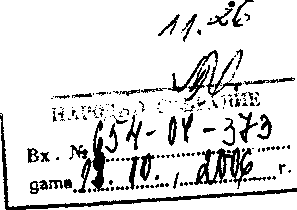 11.26
НАРОДНО СЪБРАНИЕ
Вх. № 654-04-373
дата ... 10., 2006 г.